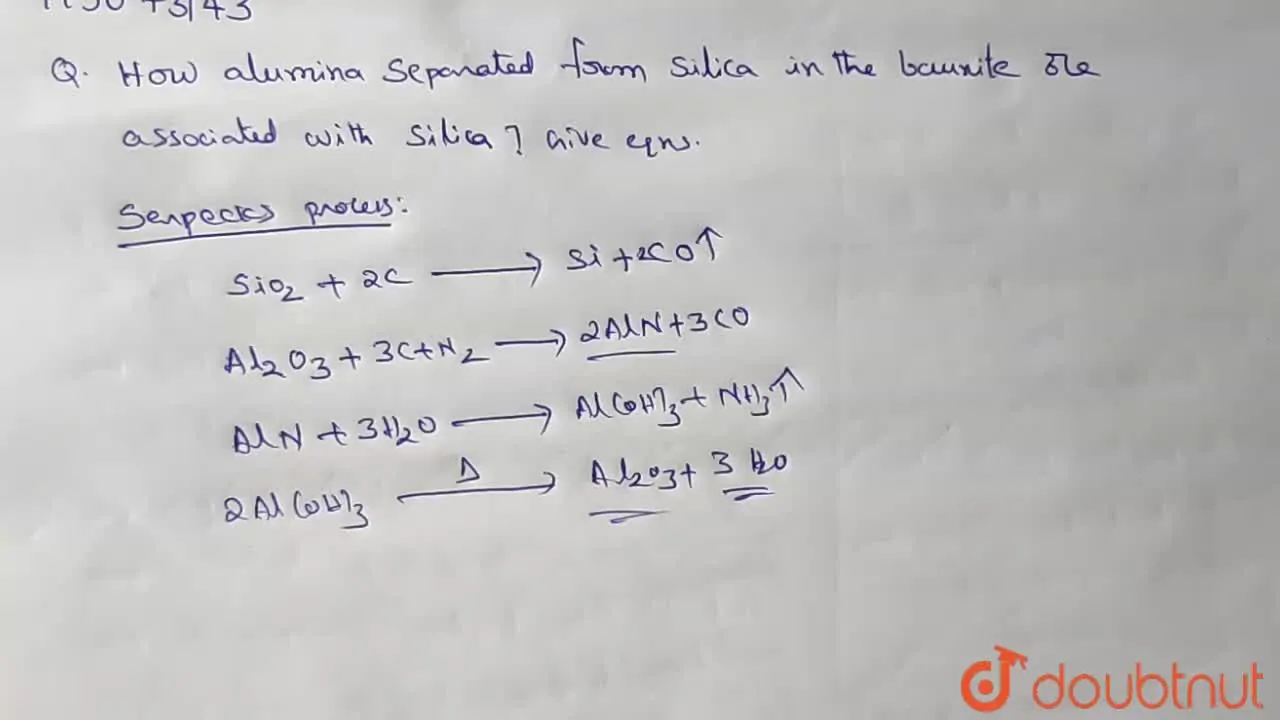 Q. How alumina separated form silica in the bauxite ore
associated with silica? Give eqns.
Serpecks process:
SiO2 + 2C ⟶ Si + 2CO↑
Al2O3 + 3C + N2 ⟶ 2AlN + 3CO
AlN + 3H2O ⟶ Al(OH)3 + NH3↑
2Al(OH)3 ⟶ Δ Al2O3 + 3H2O
doubtnut